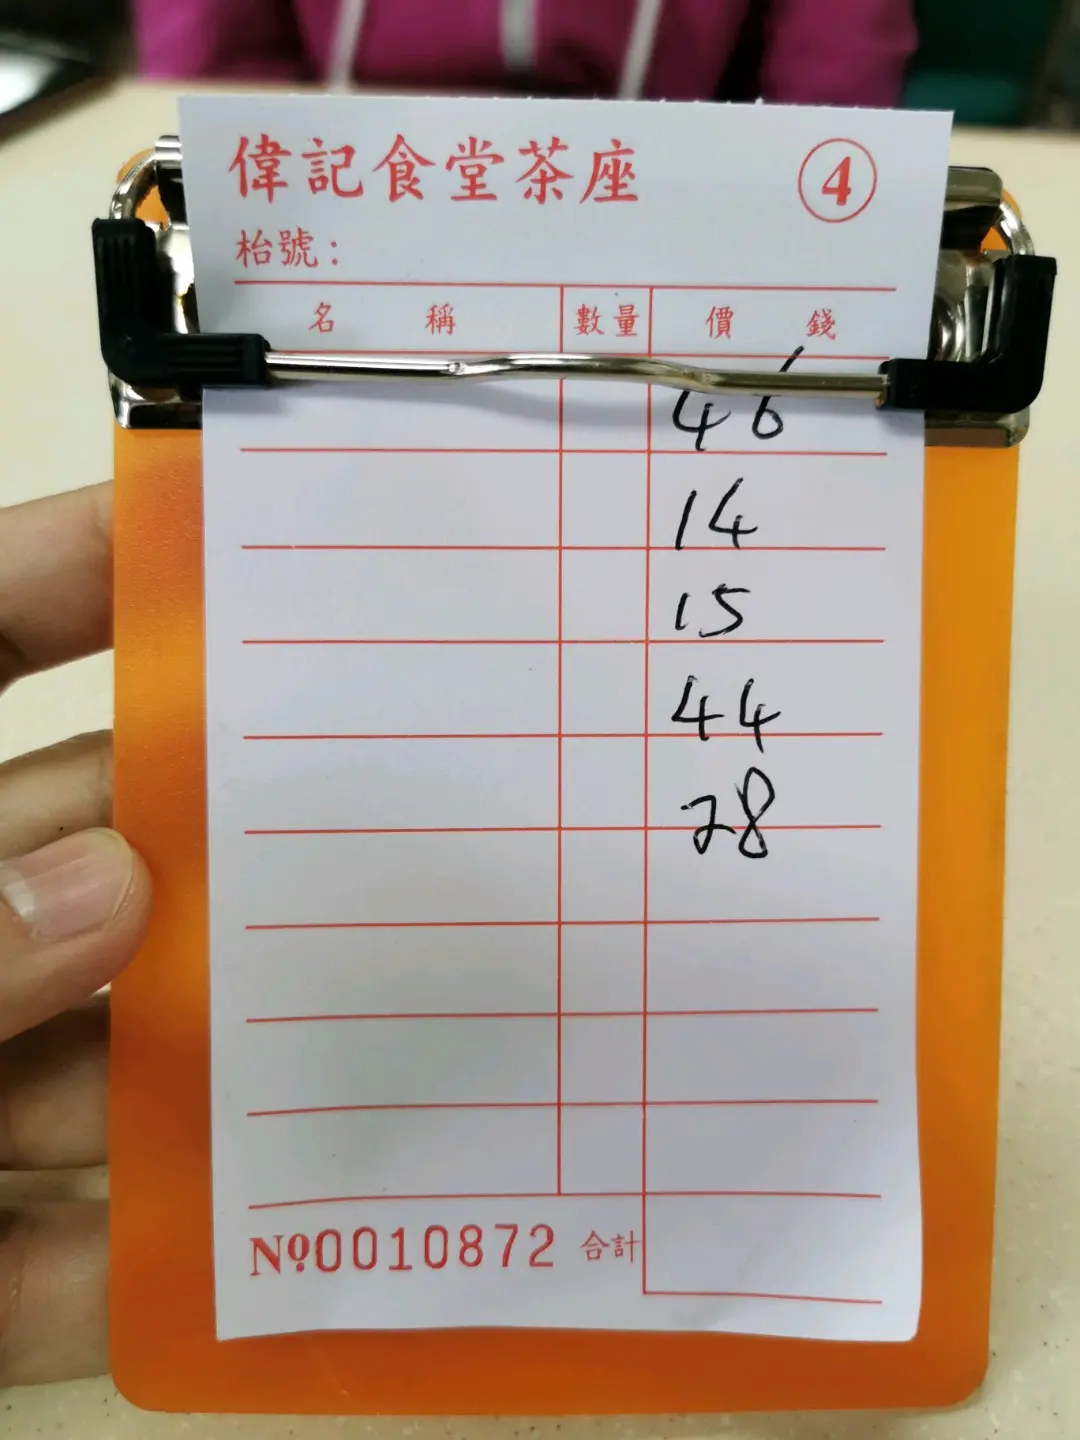 偉記食堂茶座 ④
枱號：
名稱 數量 價錢
46
14
15
44
28
Nº0010872 合計